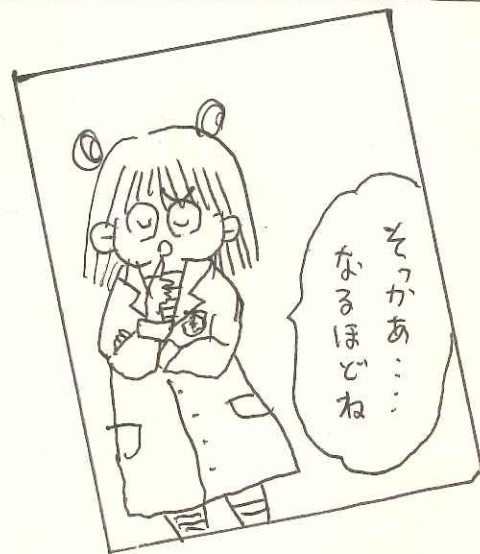 そっかあ……
なるほどね